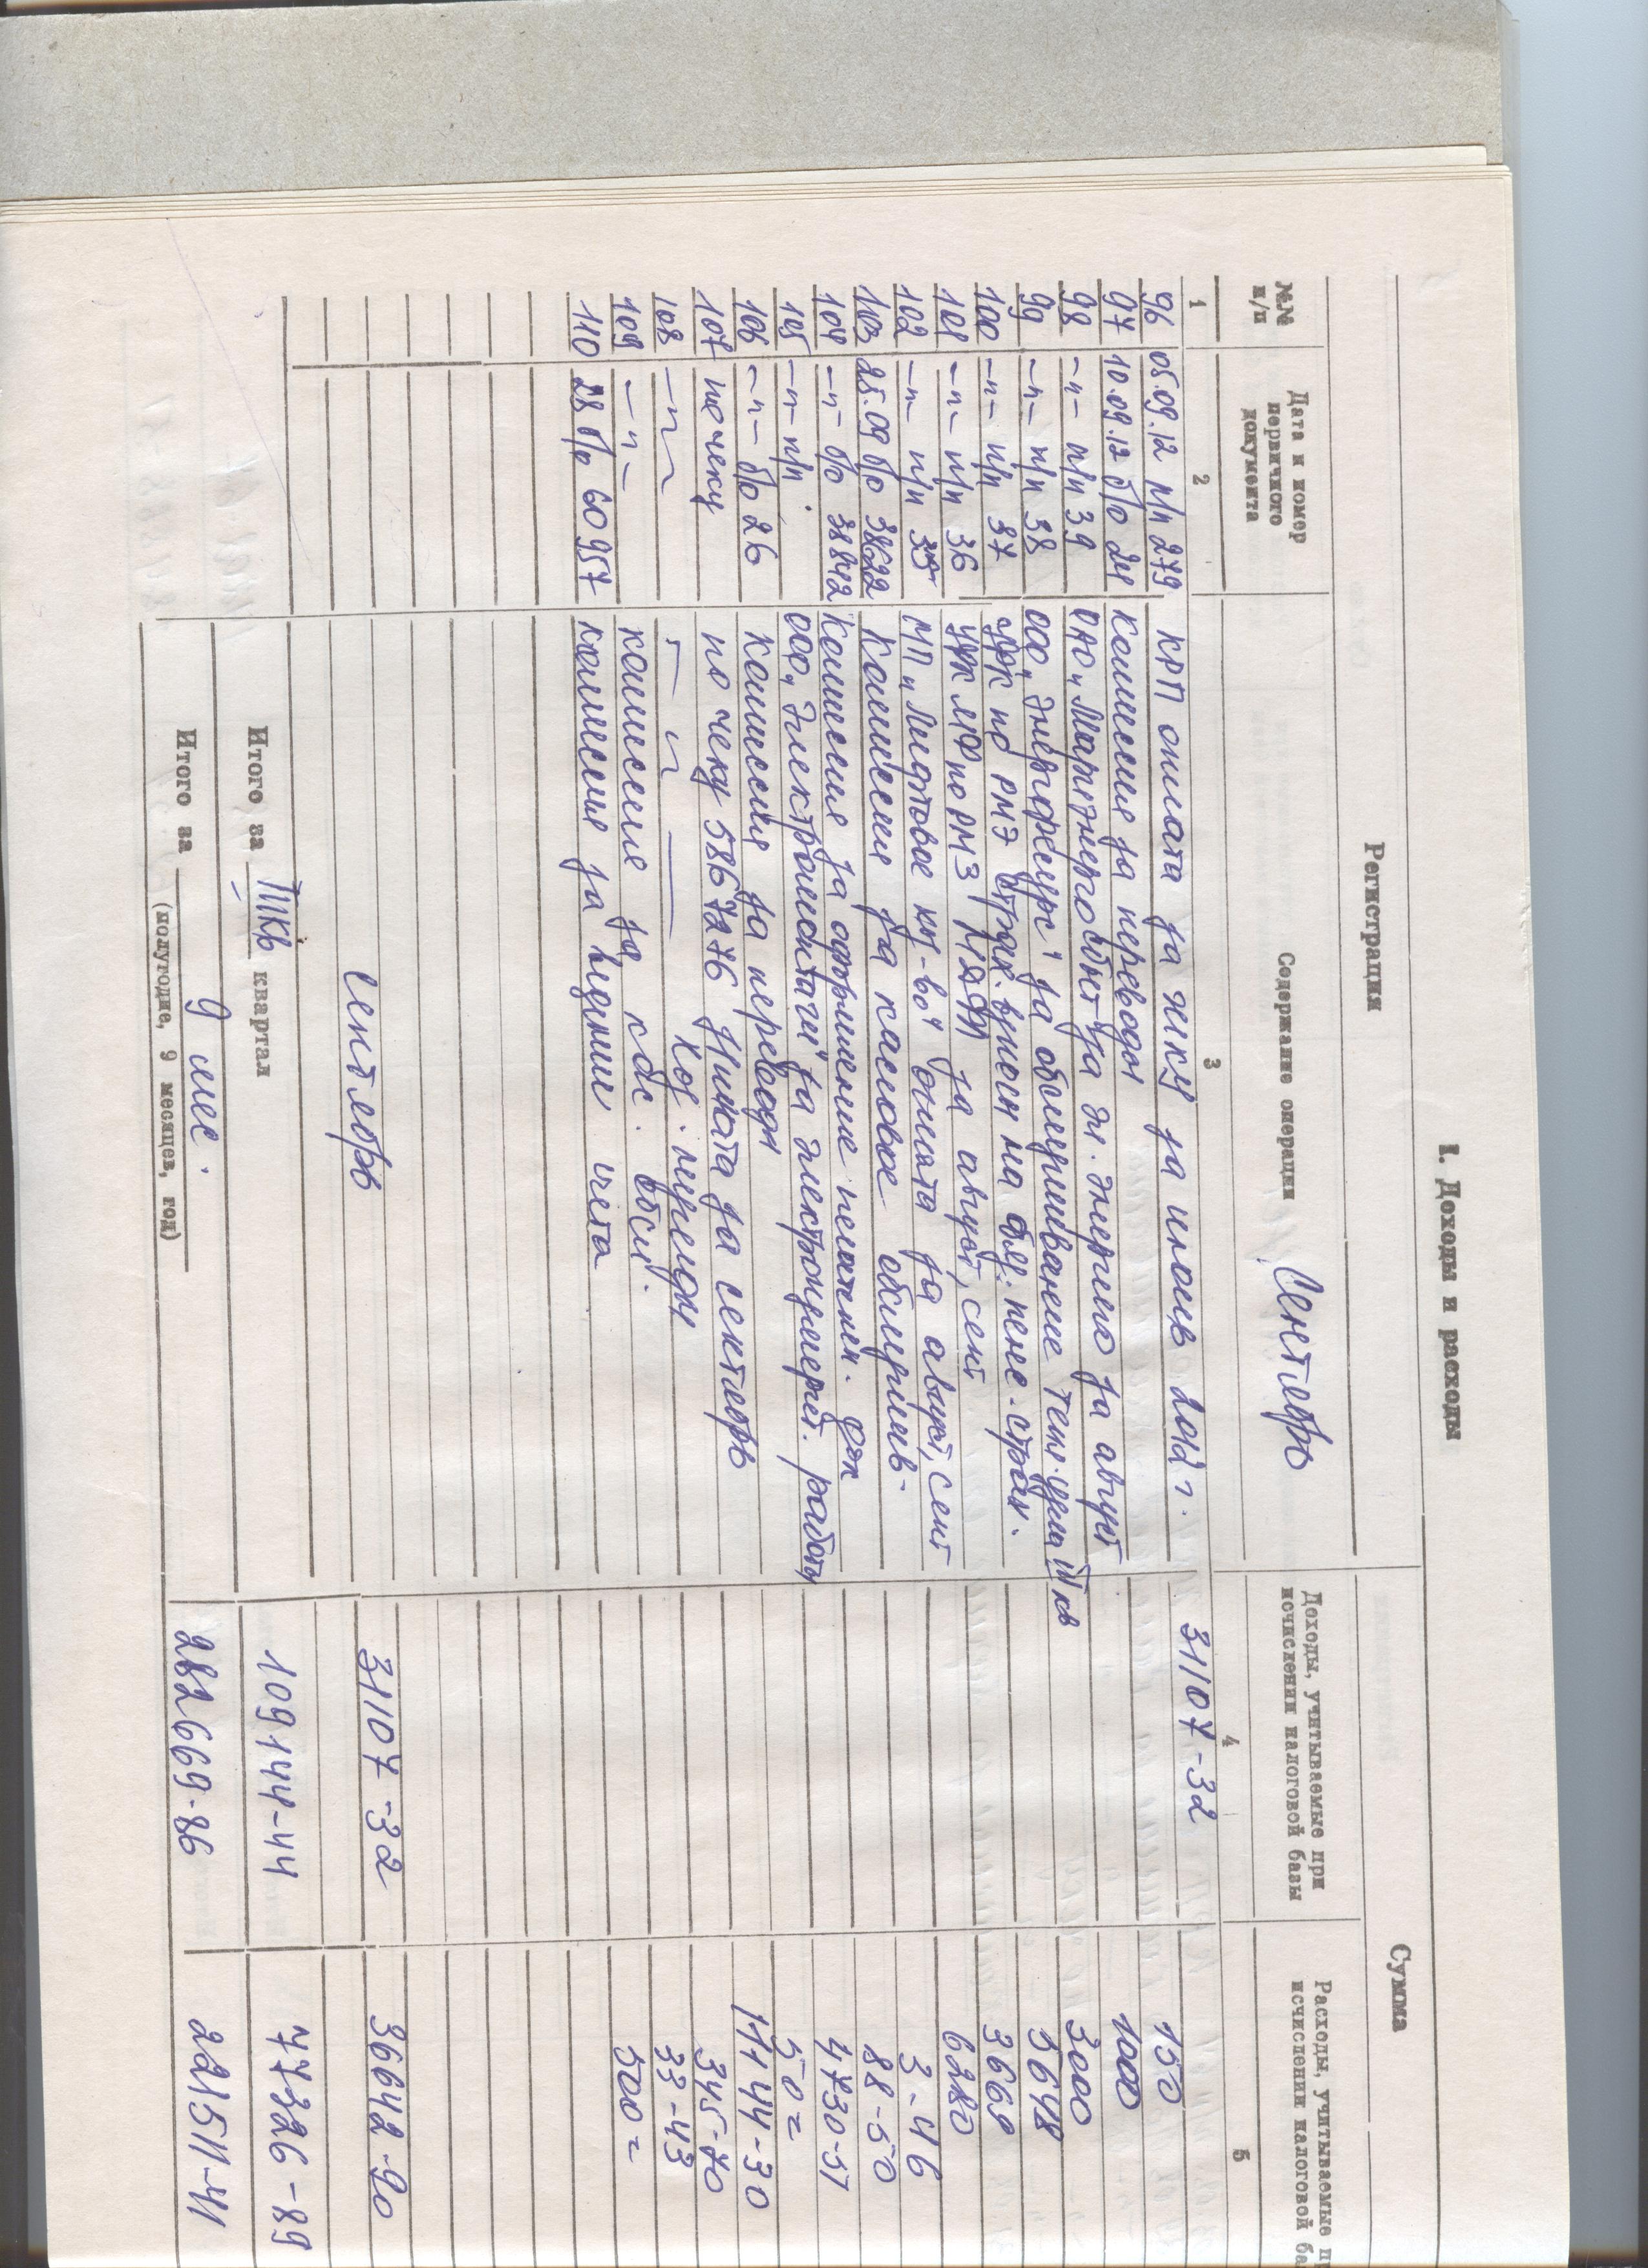 I. Доходы и расходы
Регистрация Сумма
№№ п/п Дата и номер первичного документа Содержание операции Сентябрь Доходы, учитываемые при исчислении налоговой базы Расходы, учитываемые исчислении налоговой
1 2 3 4 5
96 05.09.12 п/п 279 КРП оплата за жку за июль 2012 г. 31107-32
97 10.09.12 б/о 24 Комиссия за переводы 150
98 -"- п/п 39 ОАО "Мариэнергосбыт" за эл. энергию за август 1000
99 -"- п/п 38 ООО "Энергоресурс" за обслуживание 3000
100 -"- п/п 37 по РМЭ страх. взносы на 5648
101 -"- п/п 36 по РМЭ за август, сент 3669
102 -"- п/п 35 МП " оплата за август, сент 6280
103 25.09 б/о 38622 Комиссия за кассовое обслужив- 3-46
104 -"- б/о 38842 Комиссия за оформление 88-50
105 -"- п/п ООО "Электромонтаж" за работы 4730-51
106 -"- б/о 26 Комиссия за переводы 50=
107 по чеку по чеку 5867276 за сентябрь 11144-30
108 -"- -"- Хоз. нужды 345-70
109 -"- комиссия за обсл. 33-43
110 28 б/о 60957 комиссия за ведение счета 500=
Сентябрь 31107-32 36642-90
Итого за III кв квартал 109144-44 77326-89
Итого за 9 мес. 282669-86 221511-41
(полугодие, 9 месяцев, год)